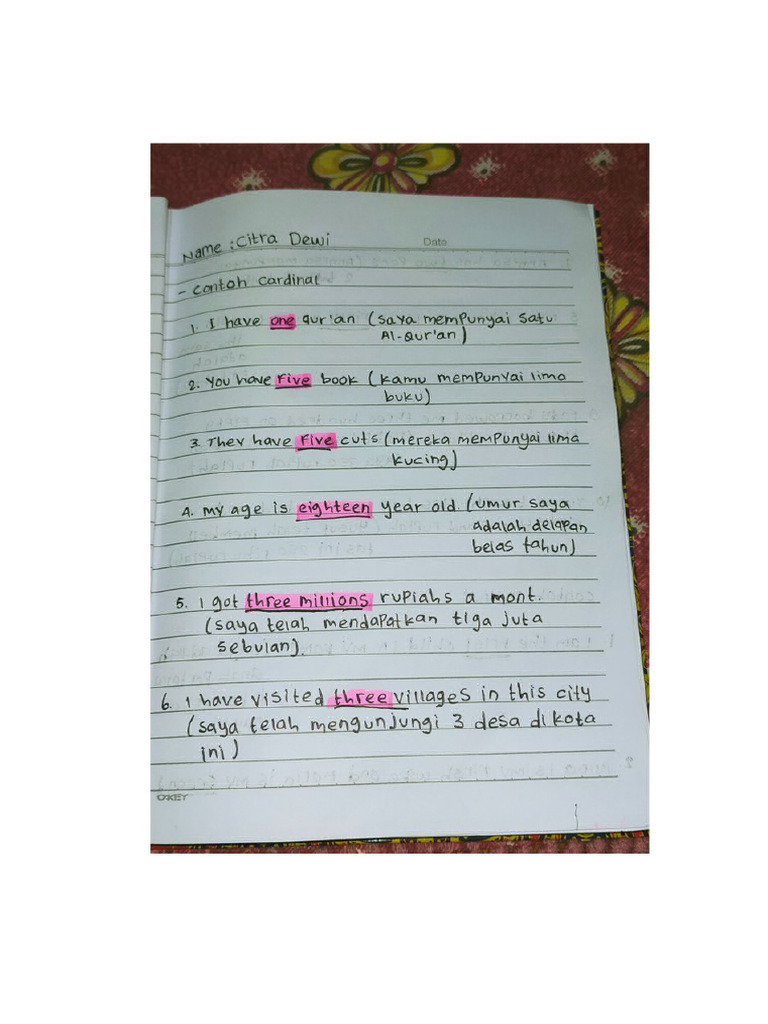 Name : Citra Dewi
Date
- Contoh Cardinal
1. I have one qur'an (saya mempunyai satu
Al-Qur'an)
2. You have five book (kamu mempunyai lima
buku)
3. They have five cuts (mereka mempunyai lima
kucing)
4. my age is eighteen year old. (umur saya
adalah delapan
belas tahun)
5. I got three millions rupiahs a mont.
(saya telah mendapatkan tiga juta
sebulan).
6. I have visited three villages in this city
(saya telah mengunjungi 3 desa di kota
ini)
OKEY